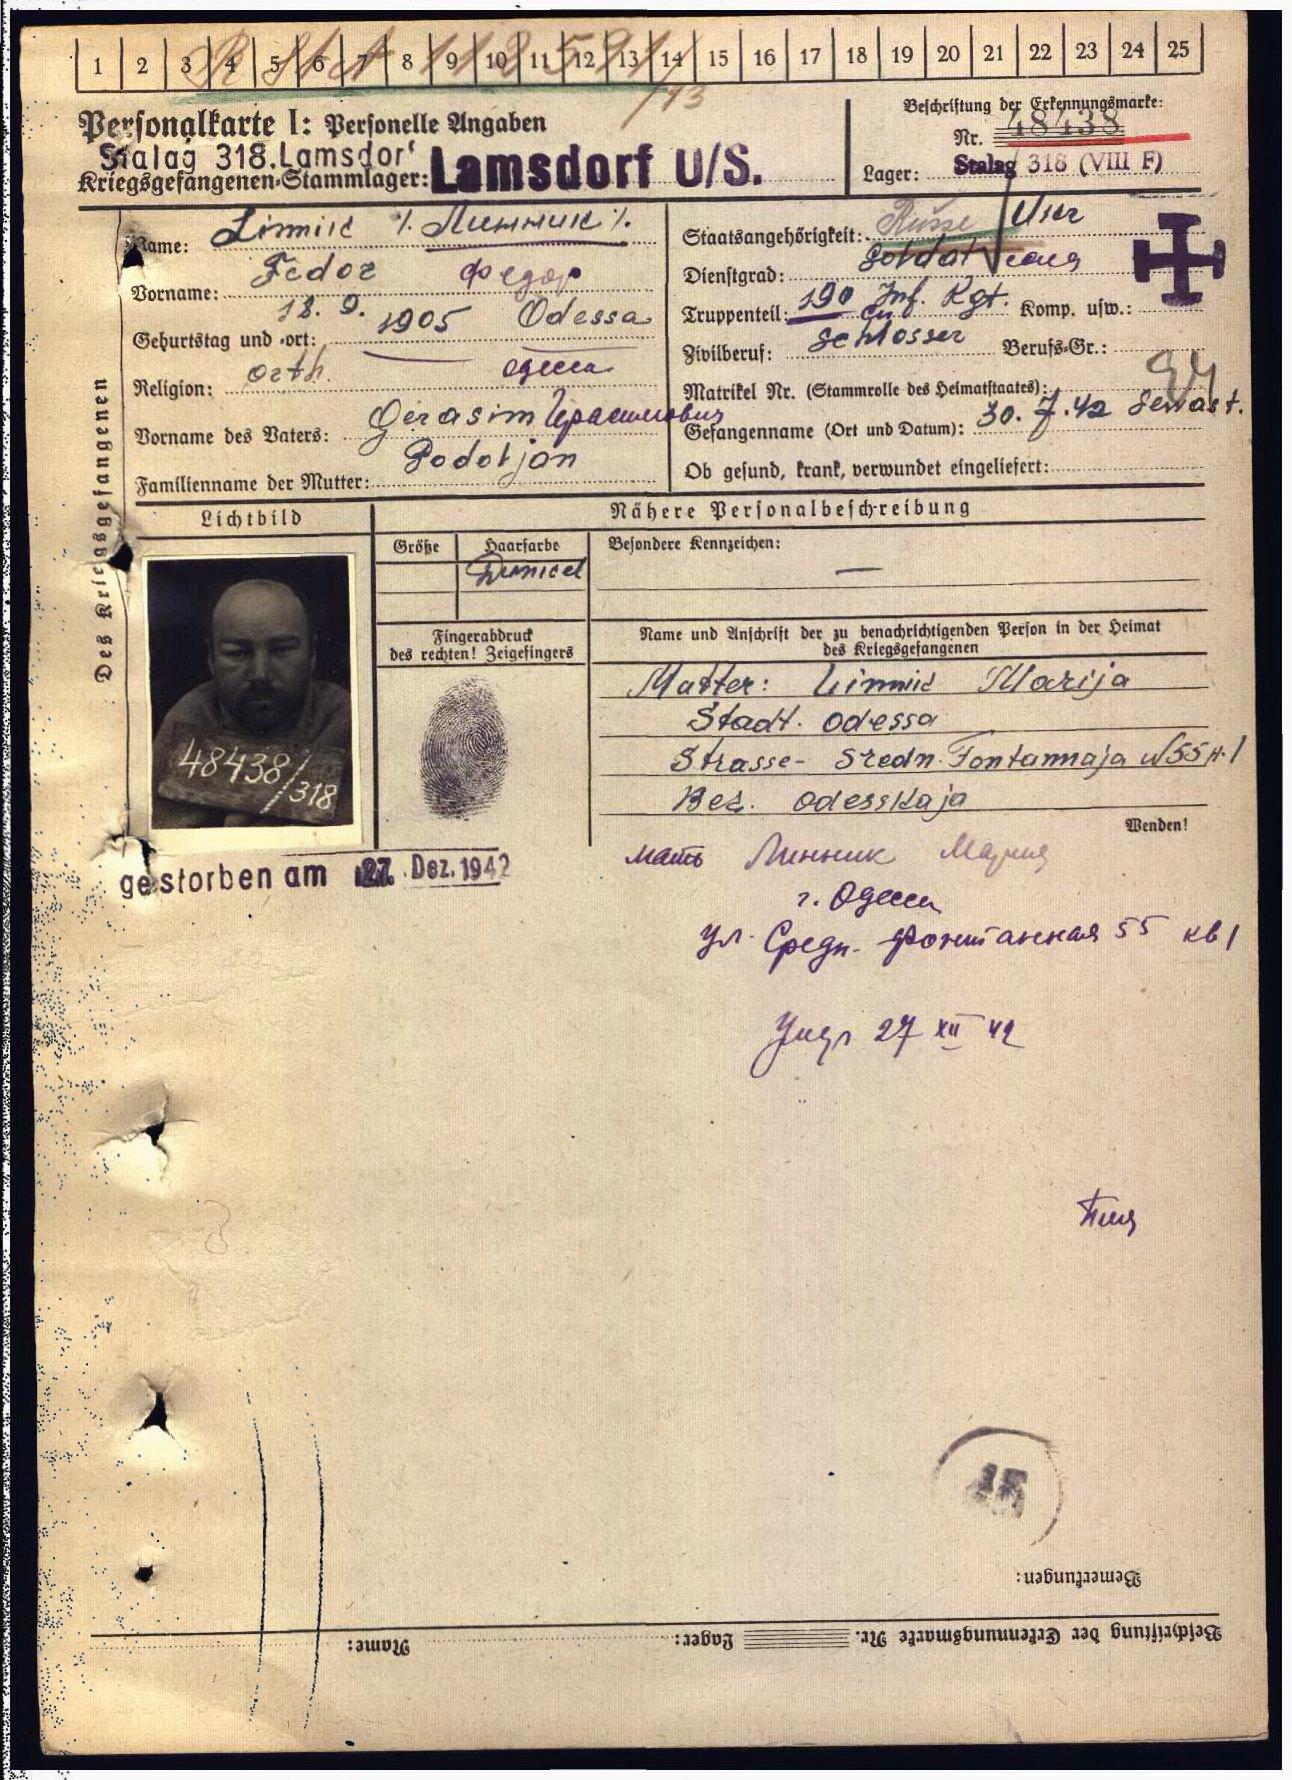 1 2 3 4 5 6 7 8 9 10 11 12 13 14 15 16 17 18 19 20 21 22 23 24 25
Personalkarte I: Personelle Angaben
Stalag 318.Lamsdorf
Kriegsgefangenen-Stammlager: Lamsdorf O/S.
Beschriftung der Erkennungsmarke:
Nr. 48438
Lager: Stalag 318 (VIII F)
Des Kriegsgefangenen
Name: Linnik /. Линник /.
Vorname: Fedor Федор
Geburtstag und -ort: 18. 9. 1905 Odessa
Religion: orth. Одесса
Vorname des Vaters: Gerasim Герасимович
Familienname der Mutter: Podoljan
Staatsangehörigkeit: Russe Ukr
Dienstgrad: Soldat
Truppenteil: 190 Inf. Rgt. Komp. usw.:
Zivilberuf: Schlosser Berufs-Gr.:
Matrikel Nr. (Stammrolle des Heimatstaates):
Gefangenname (Ort und Datum): 30. 7. 42 Sewast.
Ob gesund, krank, verwundet eingeliefert:
Lichtbild
Nähere Personalbeschreibung
Größe Haarfarbe Besondere Kennzeichen:
Dunkel —
Fingerabdruck
des rechten! Zeigefingers
Name und Anschrift der zu benachrichtigenden Person in der Heimat
des Kriegsgefangenen
Mutter: Linnik Marija
Stadt. Odessa
Strasse- Sredn. Fontannaja N 55 H. 1
Bez. Odesskaja
Wenden!
48438/
318
gestorben am 27. Dez. 1942
мать Линник Мария
г. Одесса
ул. Средн. Фонтанная 55 кв 1
27 XII 42
Bemerkungen:
Beschriftung der Erkennungsmarke Nr. Lager: Name: